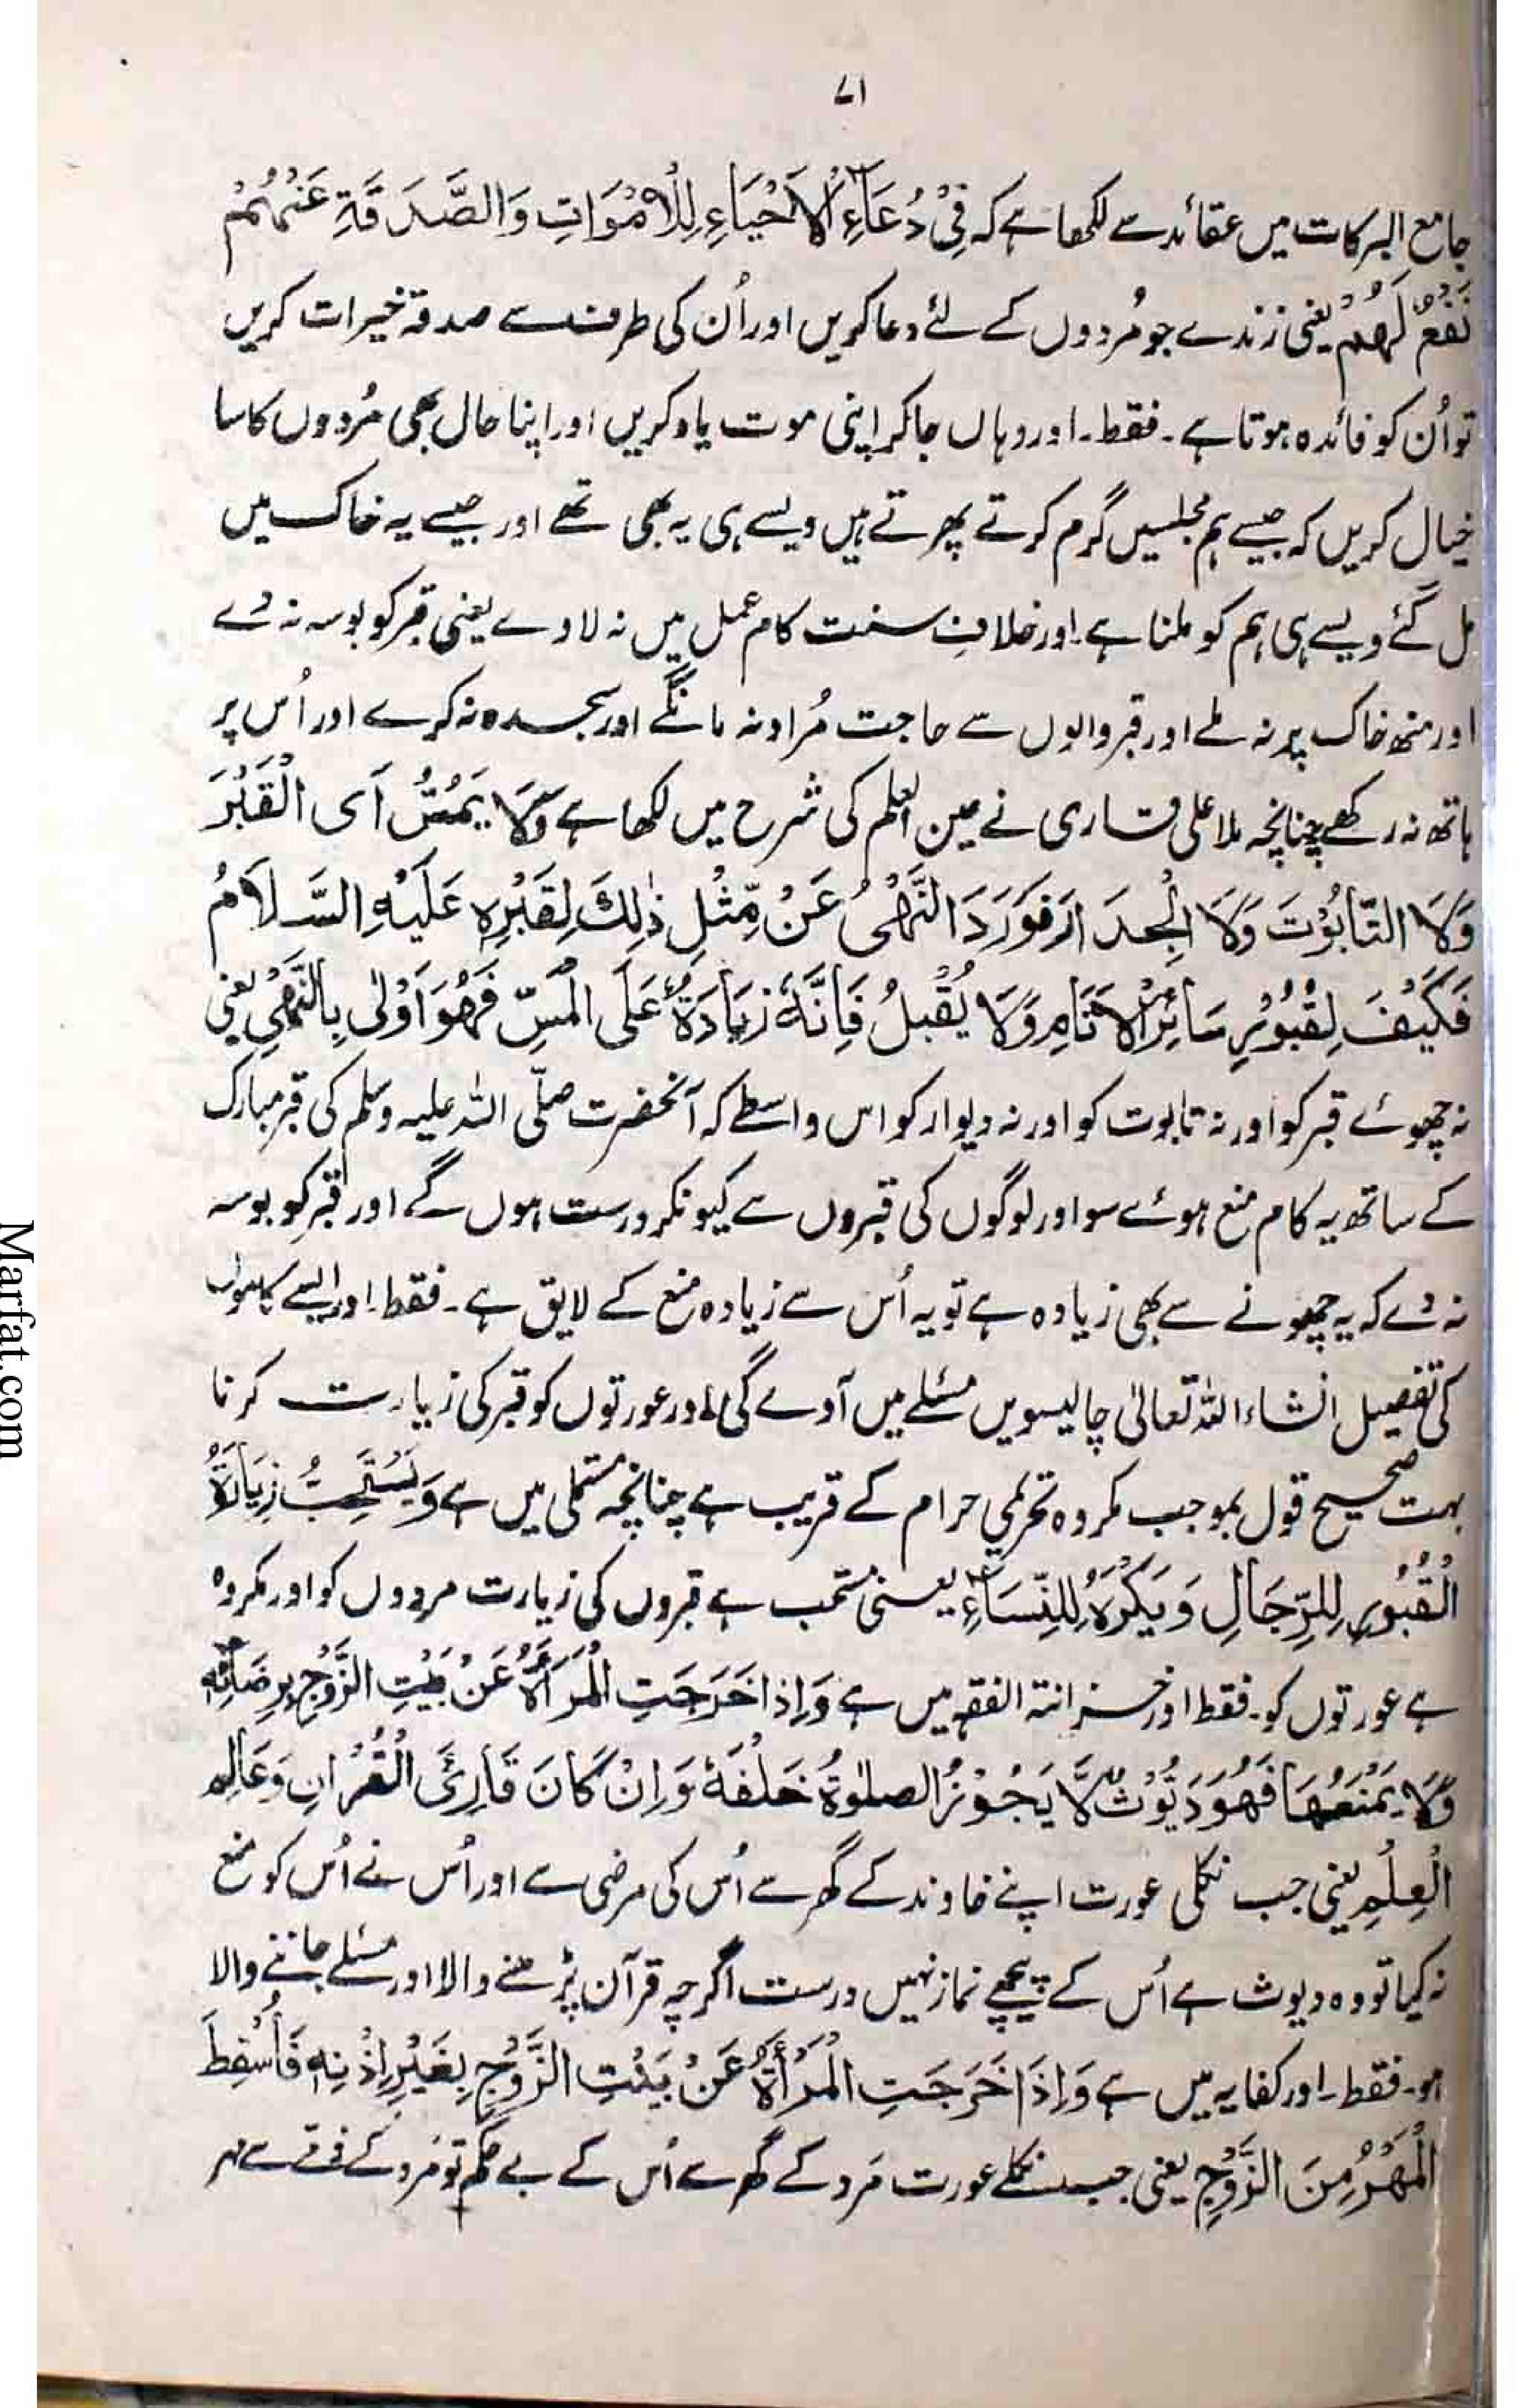 ۷۱
جامع البرکات میں عقائد سے لکھا ہے کہ فِیْ دُعَاءِ الْاَحْیَاءِ لِلْاَمْوَاتِ وَالصَّدَقَةِ عَنْهُمْ
نَفْعٌ لَهُمْ یعنی زندے جو مُردوں کے لئے دعا کریں اور اُن کی طرف سے صدقہ خیرات کریں
تو اُن کو فائدہ ہوتا ہے۔ فقط۔ اور وہاں جا کر اپنی موت یاد کریں اور اپنا حال بھی مُردوں کا سا
خیال کریں کہ جیسے ہم مجلسیں گرم کرتے پھرتے ہیں ویسے ہی یہ بھی تھے اور جیسے یہ خاک میں
مل گئے ویسے ہی ہم کو ملنا ہے۔ اور خلافِ سنت کام عمل میں نہ لاوے یعنی قبر کو بوسہ نہ دے
اور منھ خاک پر نہ ملے اور قبر والوں سے حاجت مُراد نہ مانگے اور سجدہ نہ کرے اور اُس پر
ہاتھ نہ رکھے چنانچہ ملا علی قاری نے عین العلم کی شرح میں لکھا ہے وَلَا یَمُسُّ اَی الْقَبْرَ
وَلَا التَّابُوْتَ وَلَا الْجِدَارَ فَوَرَدَ النَّهْیُ عَنْ مِّثْلِ ذٰلِكَ لِقَبْرِهٖ عَلَیْهِ السَّلَامُ
فَکَیْفَ لِقُبُوْرِ سَائِرِ الْاَنَامِ وَلَا یُقْبِلُ فَاِنَّهٗ زِیَادَةٌ عَلَی الْمَسِّ فَهُوَ اَوْلٰی بِالنَّهْیِ یعنی
نہ چھوئے قبر کو اور نہ تابوت کو اور نہ دیوار کو اس واسطے کہ آنحضرت صلّی اللہ علیہ وسلم کی قبر مبارک
کے ساتھ یہ کام منع ہوئے سو اور لوگوں کی قبروں سے کیونکر درست ہوں گے اور قبر کو بوسہ
نہ دے کہ یہ چھونے سے بھی زیادہ ہے تو یہ اُس سے زیادہ منع کے لایق ہے۔ فقط۔ اور ایسے کاموں
کی تفصیل انشاء اللہ تعالیٰ چالیسویں مسئلے میں آوے گی اور عورتوں کو قبر کی زیارت کرنا
بہت صحیح قول بموجب مکروہ تحریمی حرام کے قریب ہے چنانچہ مستملی میں ہے وَیَسْتَحِبُّ زِیَارَةُ
الْقُبُوْرِ لِلرِّجَالِ وَیَکْرَهُ لِلنِّسَاءِ یعنی مستحب ہے قبروں کی زیارت مردوں کو اور مکروہ
ہے عورتوں کو۔ فقط اور خزانتہ الفقہ میں ہے وَاِذَا خَرَجَتِ الْمَرْأَةُ عَنْ بَیْتِ الزَّوْجِ بِرِضَائِهٖ
وَلَا یَمْنَعُهَا فَهُوَ دَیُّوْثٌ لَّا یَجُوْزُ الصلٰوةُ خَلْفَهٗ وَاِنْ کَانَ قَارِئَ الْقُرْاٰنِ وَعَالِمَ
الْعِلْمِ یعنی جب نکلی عورت اپنے خاوند کے گھر سے اُس کی مرضی سے اور اُس نے اُس کو منع
نہ کیا تو وہ دیوث ہے اُس کے پیچھے نماز نہیں درست اگرچہ قرآن پڑھنے والا اور مسئلے جاننے والا
ہو۔ فقط۔ اور کفایہ میں ہے وَاِذَا خَرَجَتِ الْمَرْأَةُ عَنْ بَیْتِ الزَّوْجِ بِغَیْرِ اِذْنِهٖ فَاُسْقِطَ
الْمَهْرُ مِنَ الزَّوْجِ یعنی جب نکلے عورت مَرد کے گھر سے اُس کے بے حکم تو مَرد کے ذمّے سے مہر
Marfat.com